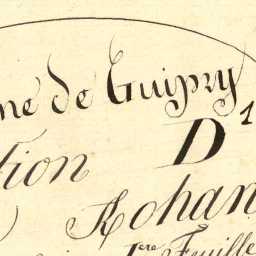 ne de Guipry
tion D 1
Rohan
1ère Feuille